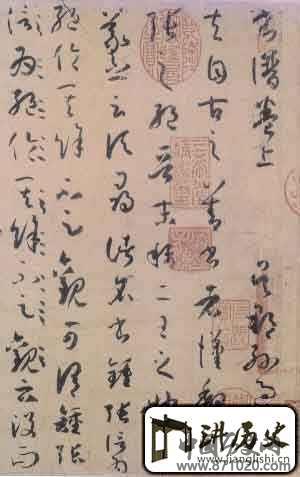 書譜卷上 吳郡孫過
夫自古之善書者漢魏
張之絕晉末稱二王之妙
羲之云頃尋諸名書鍾張信為
絕倫其餘不足觀可謂鍾張
信為絕倫其餘不足觀云沒而
讲历史
www.jianglishi.cn
www.871020.com